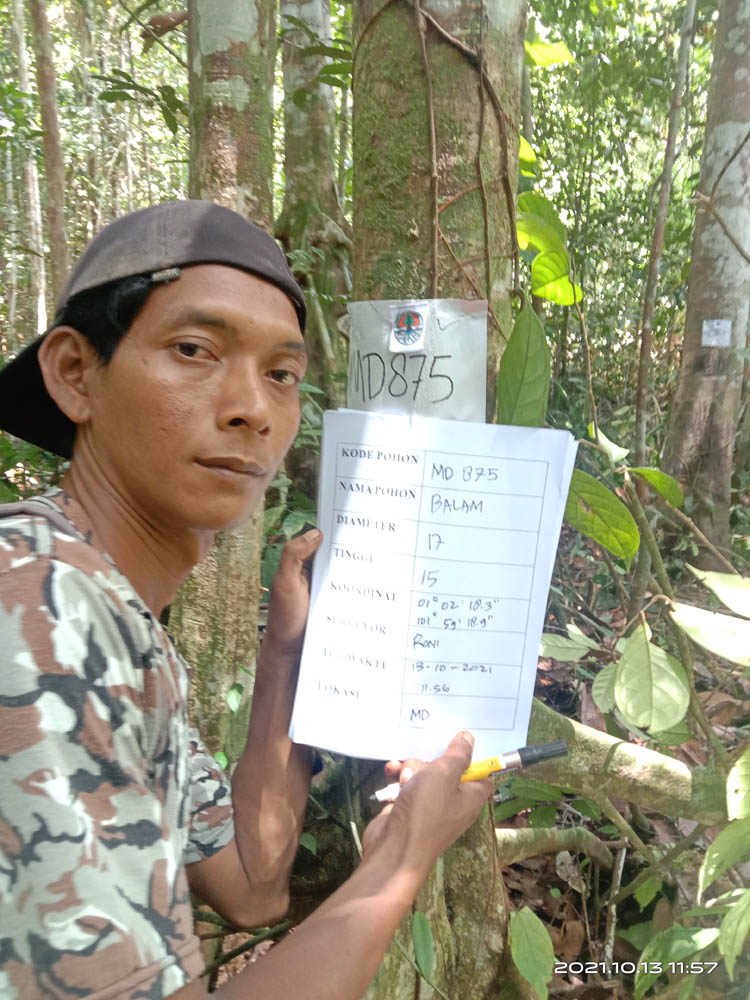 MD875
KODE POHON MD 875
NAMA POHON BALAM
DIAMETER 17
TINGGI 15
KOORDINAT 01° 02' 18.3"
101° 59' 18.9"
SURVEYOR RONI
TGL/WAKTU 13-10-2021
11.56
LOKASI MD
2021.10.13 11:57